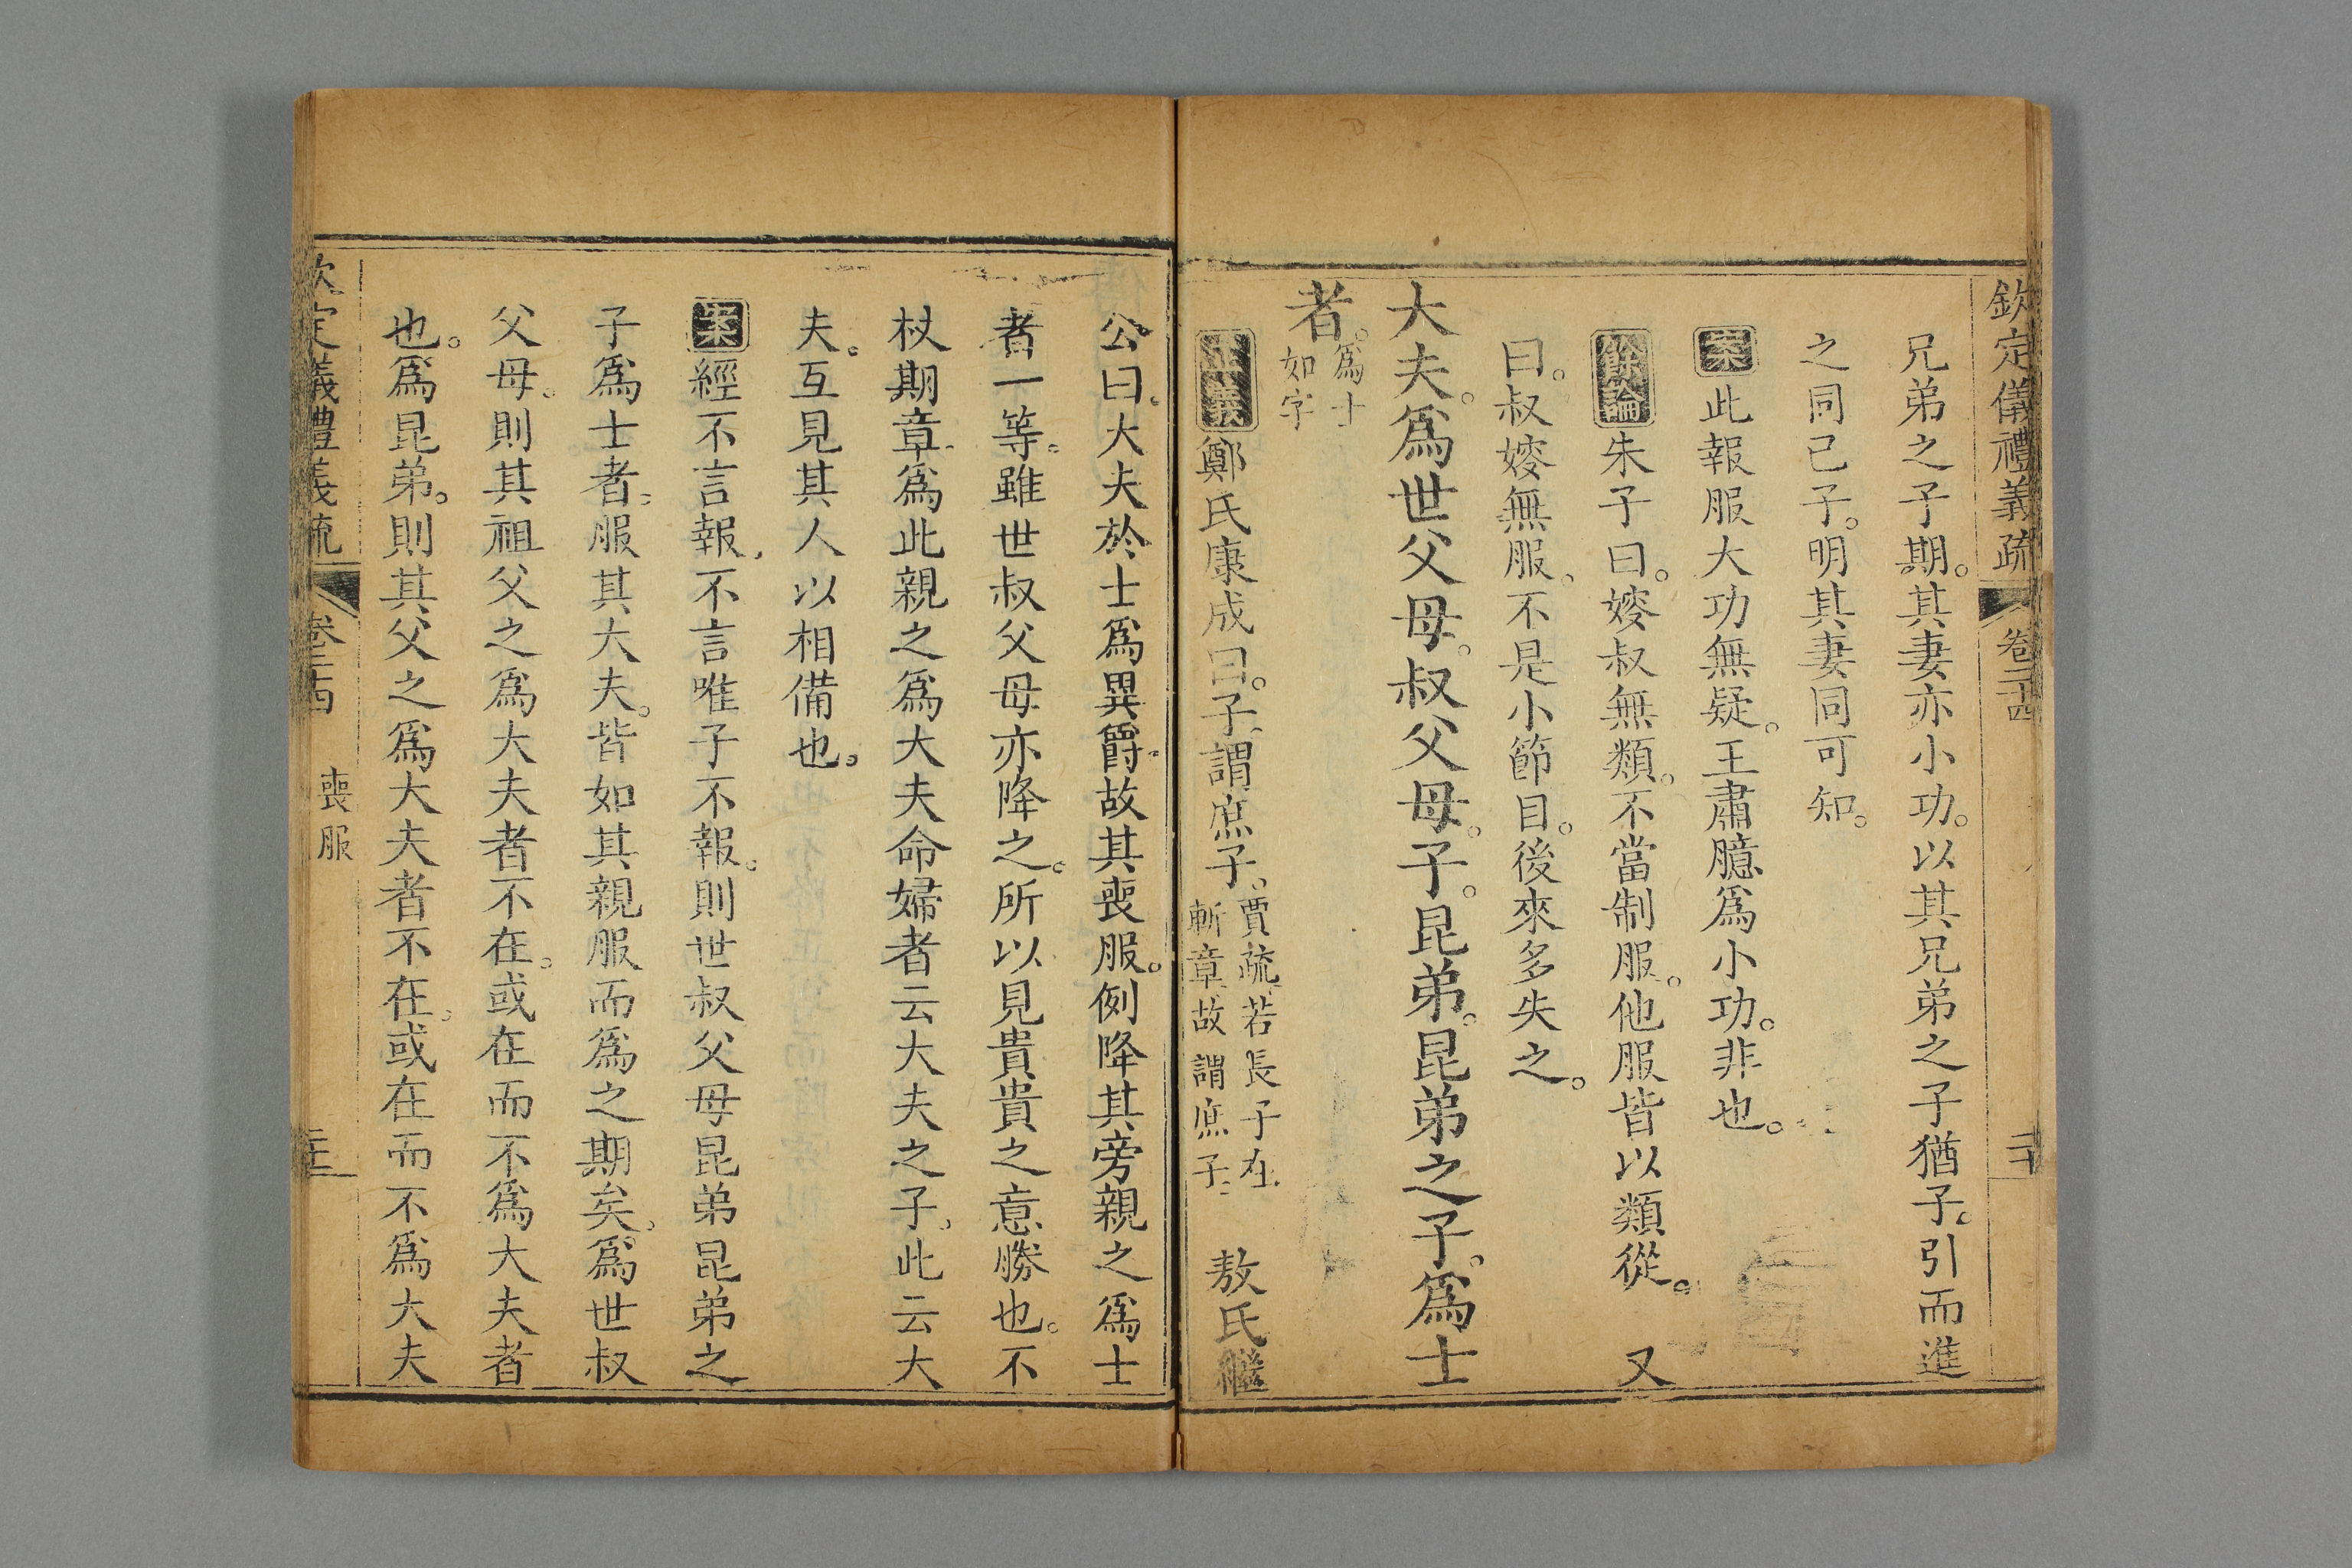 欽定儀禮義疏 卷二十四 三十
兄弟之子期。其妻亦小功。以其兄弟之子猶子。引而進
之同己子。明其妻同可知。
案此報服大功無疑。王肅臆爲小功。非也。
餘論朱子曰。嫂叔無類。不當制服。他服皆以類從。 又
曰。叔嫂無服。不是小節目。後來多失之。
大夫。爲世父母。叔父母。子。昆弟。昆弟之子。爲士
者。爲士如字
正義鄭氏康成曰。子。謂庶子。賈疏。若長子在斬章。故謂庶子。 敖氏繼
公曰。大夫於士爲異爵。故其喪服。例降其旁親之爲士
者一等。雖世叔父母亦降之。所以見貴貴之意勝也。不
杖期章。爲此親之爲大夫命婦者云大夫之子。此云大
夫。互見其人以相備也。
案經不言報。不言唯子不報。則世叔父母昆弟昆弟之
子爲士者。服其大夫。皆如其親服而爲之期矣。爲世叔
父母。則其祖父之爲大夫者不在。或在而不爲大夫者
也。爲昆弟。則其父之爲大夫者不在。或在而不爲大夫
欽定儀禮義疏 卷二十四 喪服